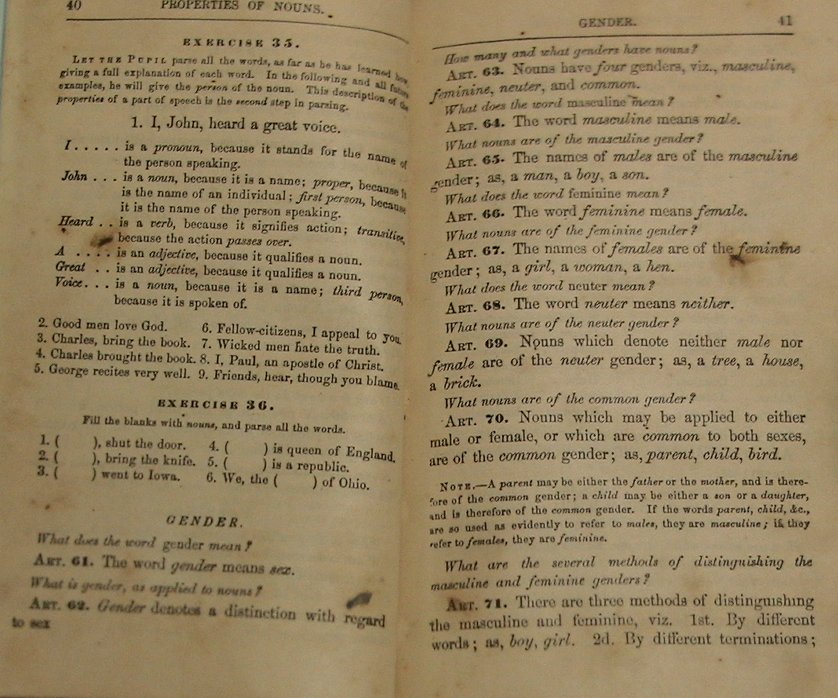 40 PROPERTIES OF NOUNS.
EXERCISE 35.
LET THE PUPIL parse all the words, as far as he has learned how,
giving a full explanation of each word. In the following and all future
examples, he will give the person of the noun. This description of the
properties of a part of speech is the second step in parsing.
1. I, John, heard a great voice.
I . . . . . is a pronoun, because it stands for the name of
the person speaking.
John . . . is a noun, because it is a name; proper, because it
is the name of an individual; first person, because
it is the name of the person speaking.
Heard . . is a verb, because it signifies action; transitive,
because the action passes over.
A . . . . is an adjective, because it qualifies a noun.
Great . . is an adjective, because it qualifies a noun.
Voice. . . is a noun, because it is a name; third person,
because it is spoken of.
2. Good men love God. 6. Fellow-citizens, I appeal to you.
3. Charles, bring the book. 7. Wicked men hate the truth.
4. Charles brought the book. 8. I, Paul, an apostle of Christ.
5. George recites very well. 9. Friends, hear, though you blame.
EXERCISE 36.
Fill the blanks with nouns, and parse all the words.
1. ( ), shut the door. 4. ( ) is queen of England.
2. ( ), bring the knife. 5. ( ) is a republic.
3. ( ) went to Iowa. 6. We, the ( ) of Ohio.
GENDER.
What does the word gender mean?
ART. 61. The word gender means sex.
What is gender, as applied to nouns?
ART. 62. Gender denotes a distinction with regard
to sex
GENDER. 41
How many and what genders have nouns?
ART. 63. Nouns have four genders, viz., masculine,
feminine, neuter, and common.
What does the word masculine mean?
ART. 64. The word masculine means male.
What nouns are of the masculine gender?
ART. 65. The names of males are of the masculine
gender; as, a man, a boy, a son.
What does the word feminine mean?
ART. 66. The word feminine means female.
What nouns are of the feminine gender?
ART. 67. The names of females are of the feminine
gender; as, a girl, a woman, a hen.
What does the word neuter mean?
ART. 68. The word neuter means neither.
What nouns are of the neuter gender?
ART. 69. Nouns which denote neither male nor
female are of the neuter gender; as, a tree, a house,
a brick.
What nouns are of the common gender?
ART. 70. Nouns which may be applied to either
male or female, or which are common to both sexes,
are of the common gender; as, parent, child, bird.
NOTE.—A parent may be either the father or the mother, and is there-
fore of the common gender; a child may be either a son or a daughter,
and is therefore of the common gender. If the words parent, child, &c.,
are so used as evidently to refer to males, they are masculine; if they
refer to females, they are feminine.
What are the several methods of distinguishing the
masculine and feminine genders?
ART. 71. There are three methods of distinguishing
the masculine and feminine, viz. 1st. By different
words; as, boy, girl. 2d. By different terminations;